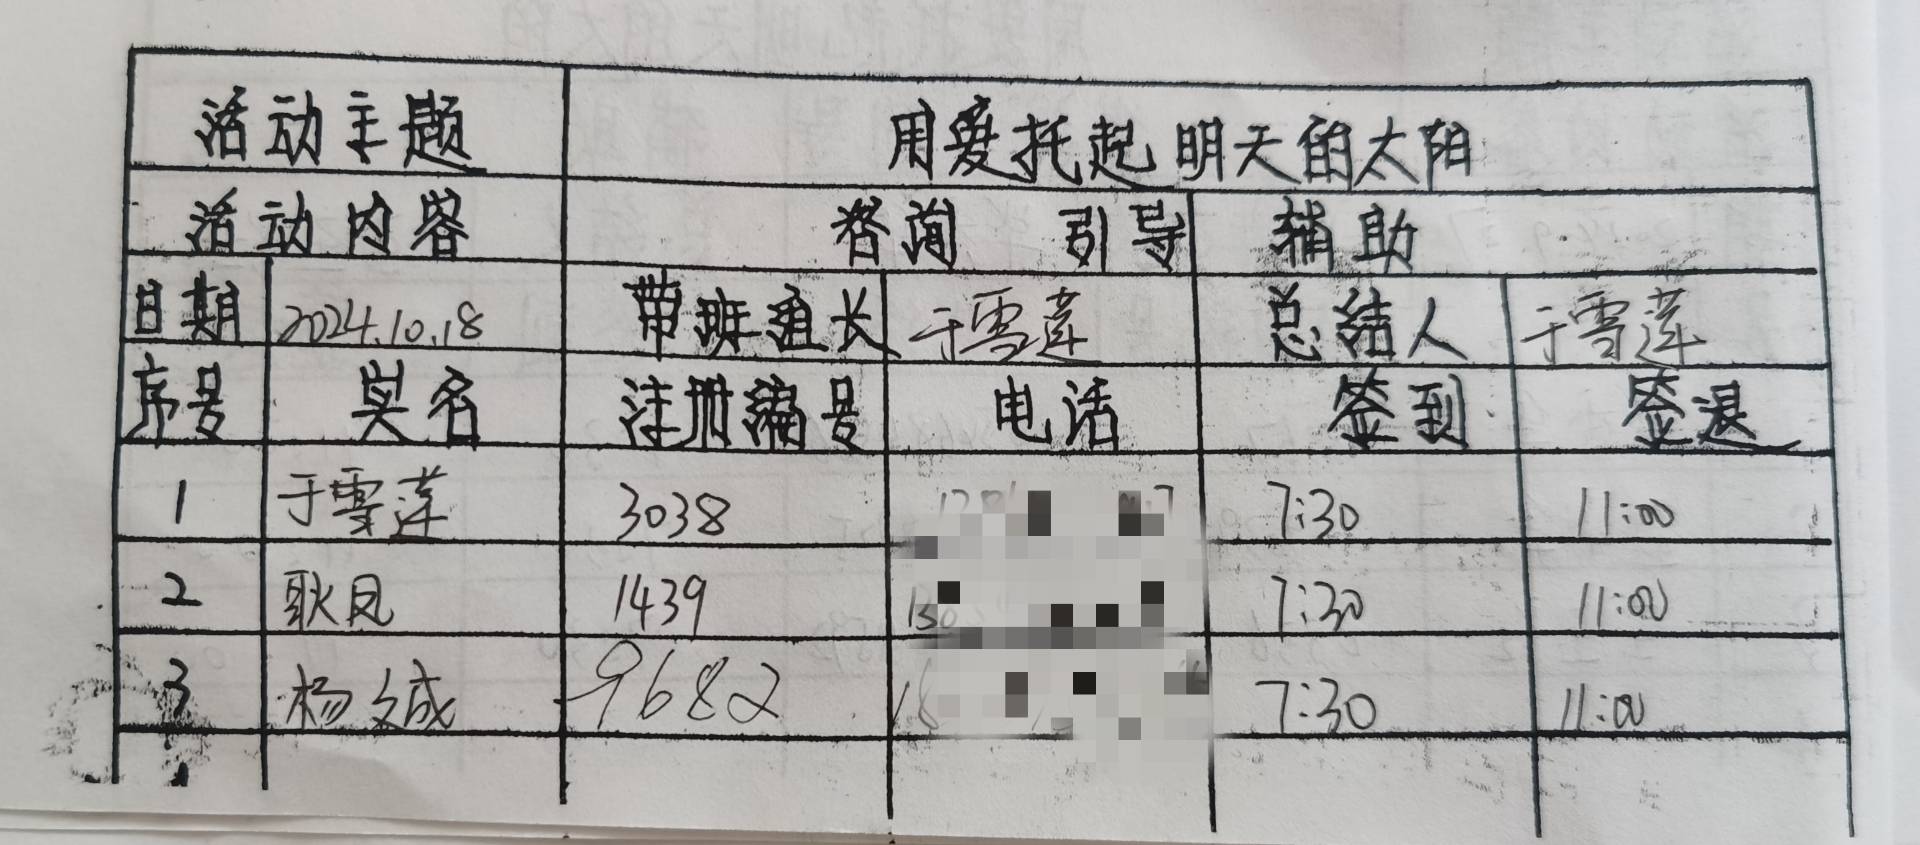 活动主题 用爱托起明天的太阳
活动内容 咨询 引导 辅助
日期 2024.10.18 带班组长 于雪莲 总结人 于雪莲
序号 姓名 注册编号 电话 签到 签退
1 于雪莲 3038 7:30 11:00
2 耿凤 1439 7:30 11:00
3 杨文成 9682 7:30 11:00